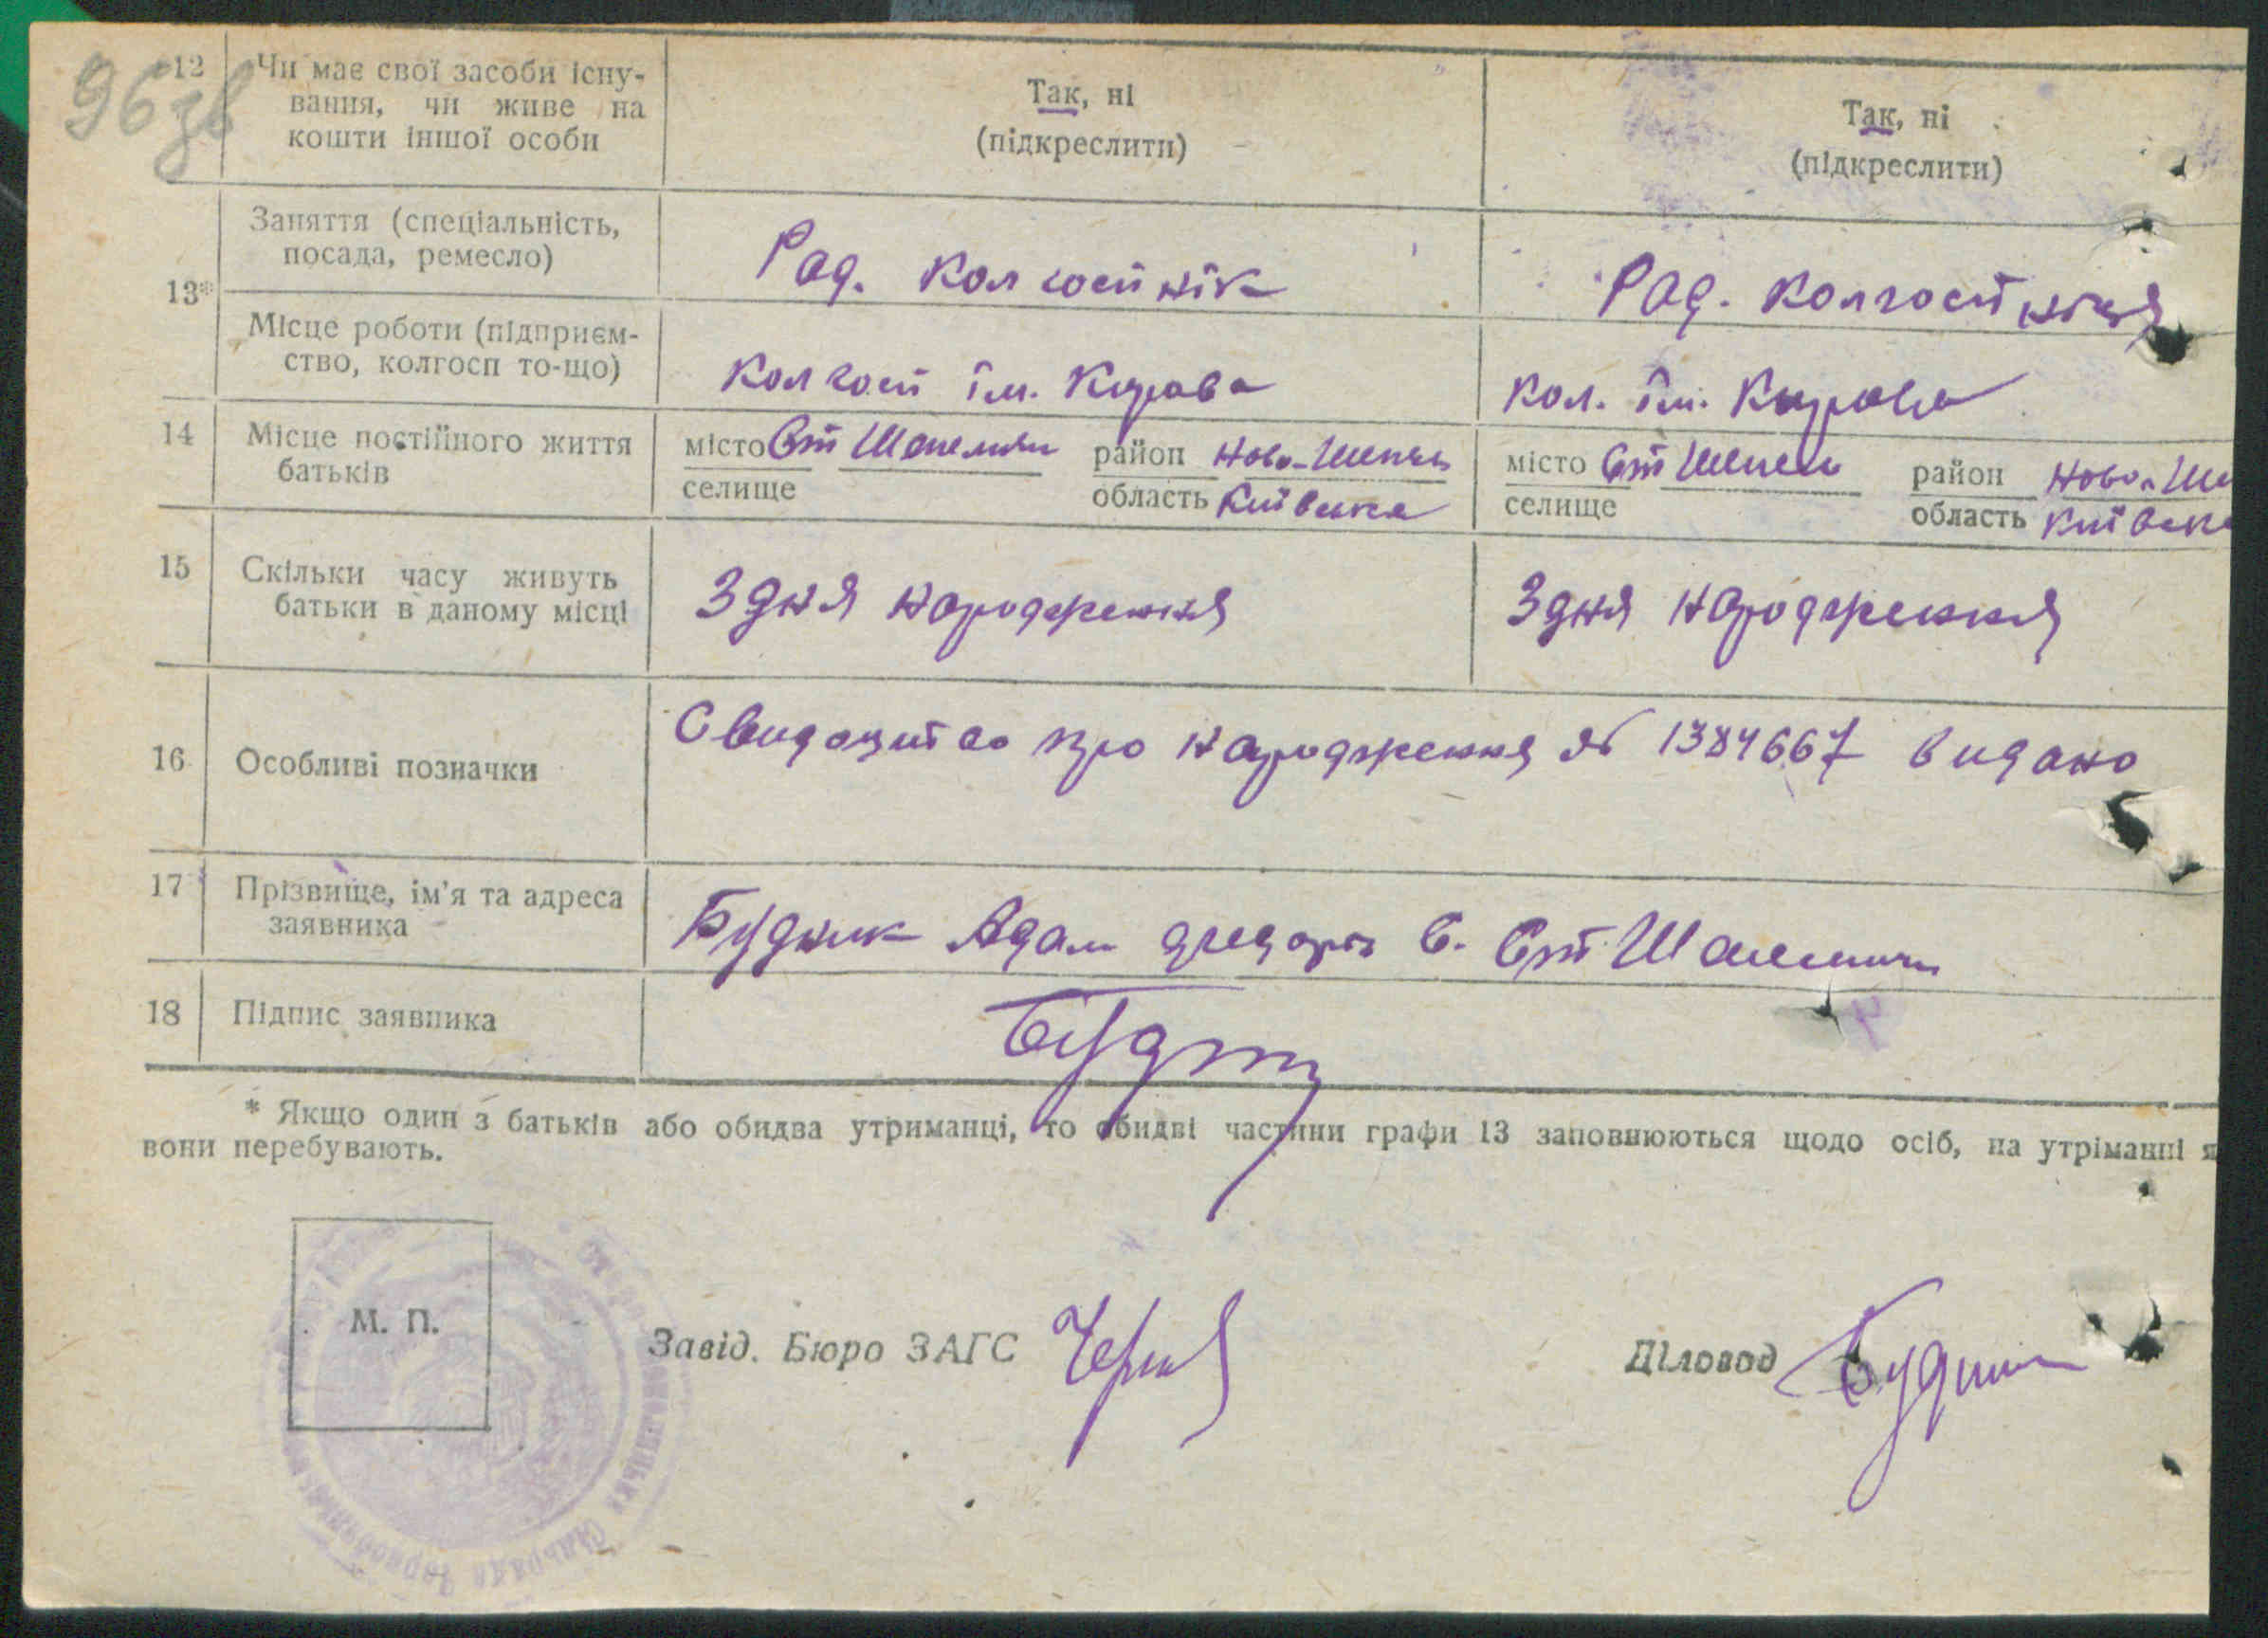 96 зв
12 Чи має свої засоби існу-
вання, чи живе на
кошти іншої особи
Так, ні
(підкреслити)
Так, ні
(підкреслити)
13*
Заняття (спеціальність,
посада, ремесло)
Рад. колгоспнік
Рад. колгоспніця
Місце роботи (підприєм-
ство, колгосп то-що)
Колгосп ім. Кірова
Кол. ім. Кірова
14 Місце постійного життя
батьків
місто Ст Шепеличі район Ново-Шепел
селище область Київська
місто Ст Шепели район Ново-Ше
селище область Київська
15 Скільки часу живуть
батьки в даному місці
З дня народження
З дня народження
16 Особливі позначки
Свидоцтво про народження № 1384667 видано
17 Прізвище, ім'я та адреса
заявника
Будник Адам с. Ст Шепеличи
18 Підпис заявника
* Якщо один з батьків або обидва утриманці, то обидві частини графи 13 заповнюються щодо осіб, на утріманні я
вони перебувають.
М. П.
Завід. Бюро ЗАГС
Діловод Будник